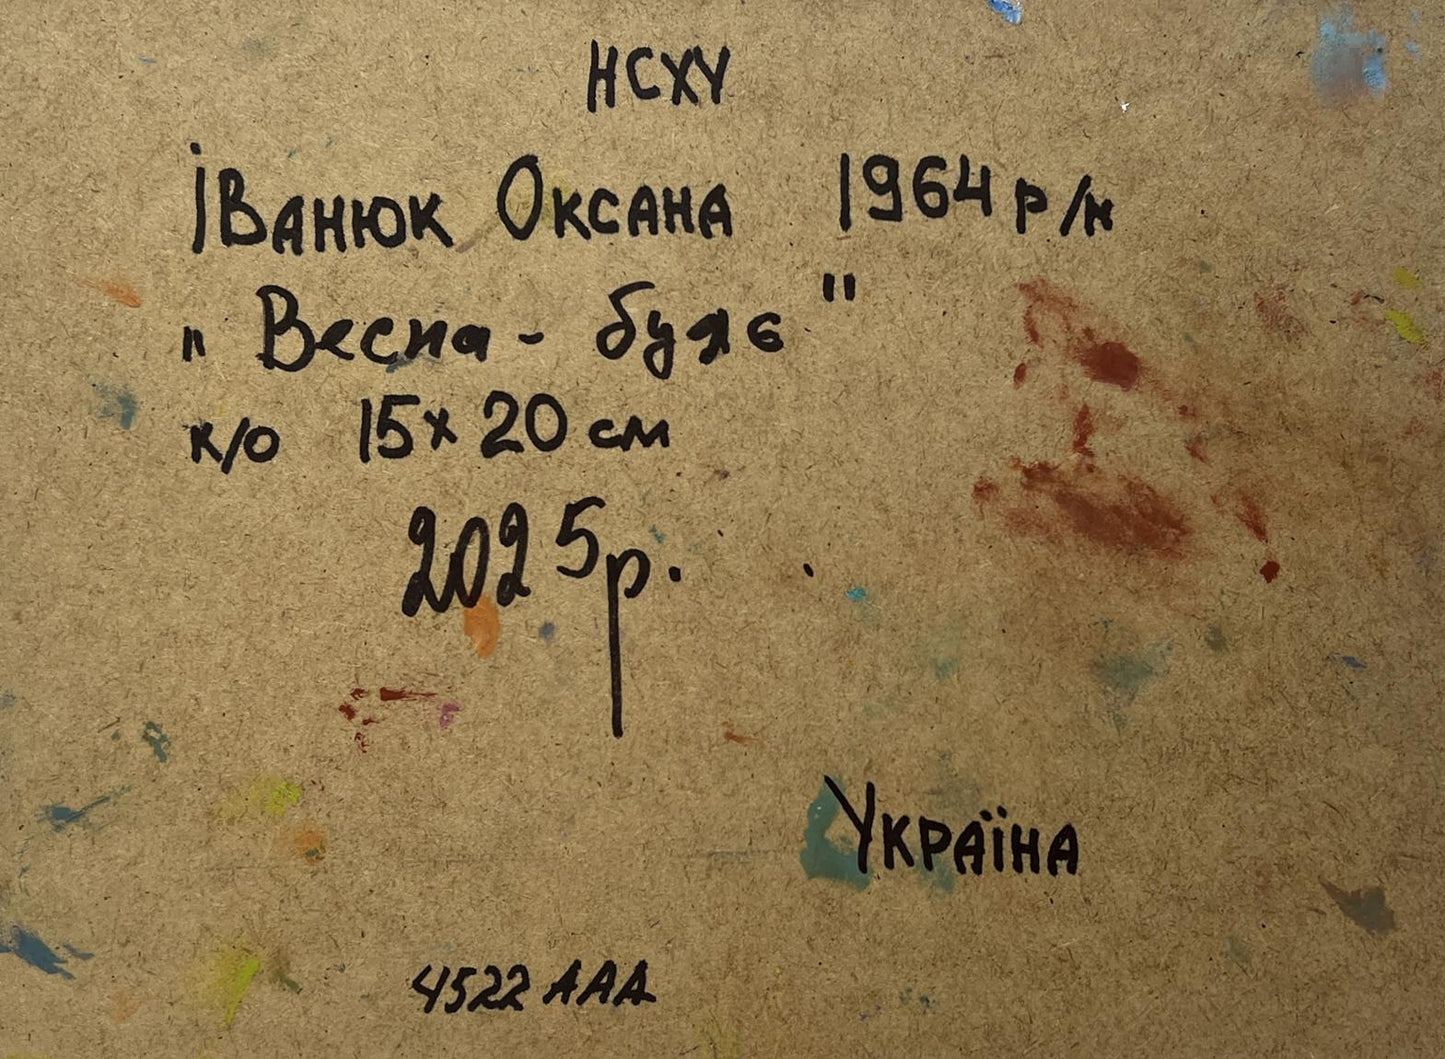 НСХУ
Іванюк Оксана 1964 р/н
„Весна - буяє"
к/о 15х20 см
2025р.
Україна
4522 ААА